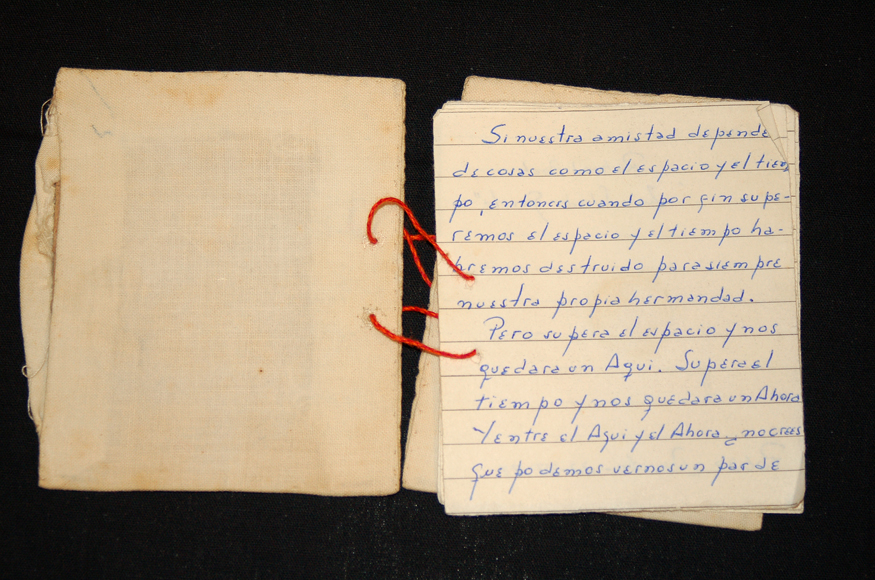 Si nuestra amistad depende
de cosas como el espacio y el tiem
po, entonces cuando por fin supe-
remos el espacio y el tiempo ha-
bremos destruido para siempre
nuestra propia hermandad.
Pero supera el espacio y nos
quedara un Aqui. Supera el
tiempo y nos quedara un Ahora
Y entre el Aqui y el Ahora ¿no crees
que podemos vernos un par de